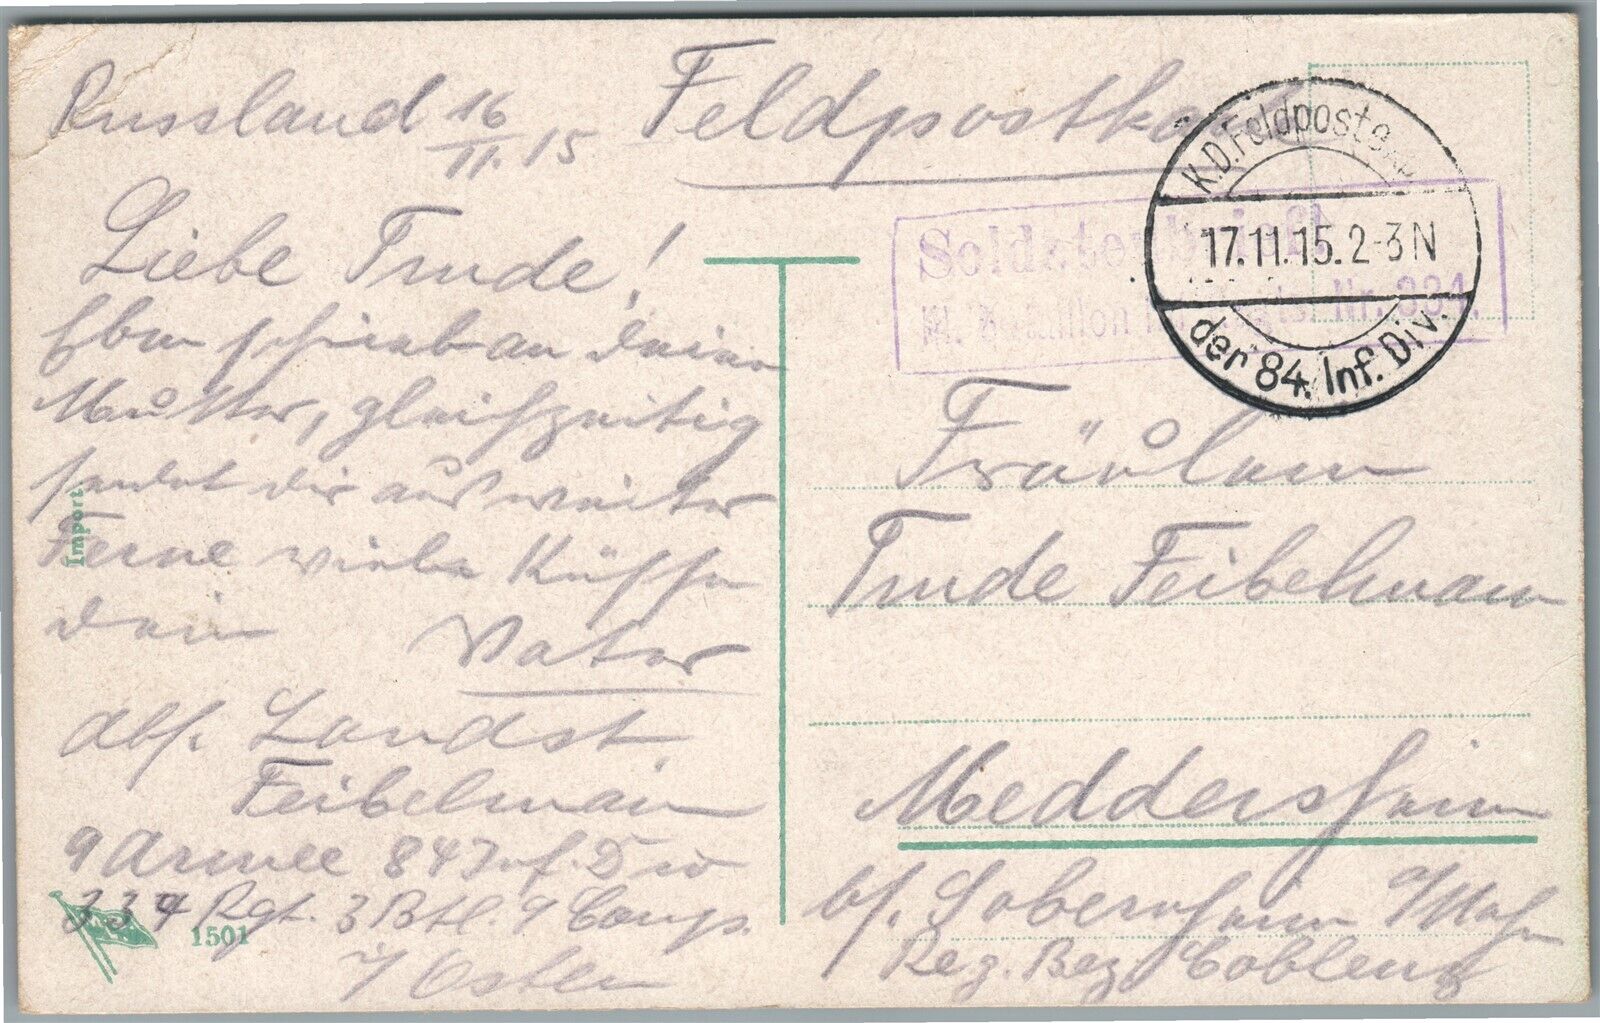 Russland 16/11.15
Feldpostkarte
Liebe Trude!
Eben schrieb an deine
Mutter, gleichzeitig
sendet dir aus weiter
Ferne viele Küsse
dein Vater
Abs. Landst.
Feibelmann
9 Armee 84 Inf. Div
334 Rgt. 3 Btl. 9 Comp.
i/Osten
Import
1501
K.D. Feldpostexp.
17.11.15. 2-3 N
der 84. Inf. Div.
Soldatenbrief
Nr. 334.
Fräulein
Trude Feibelmann
Meddersheim
bs. Sobernheim a/Nahe
Reg. Bez. Coblenz